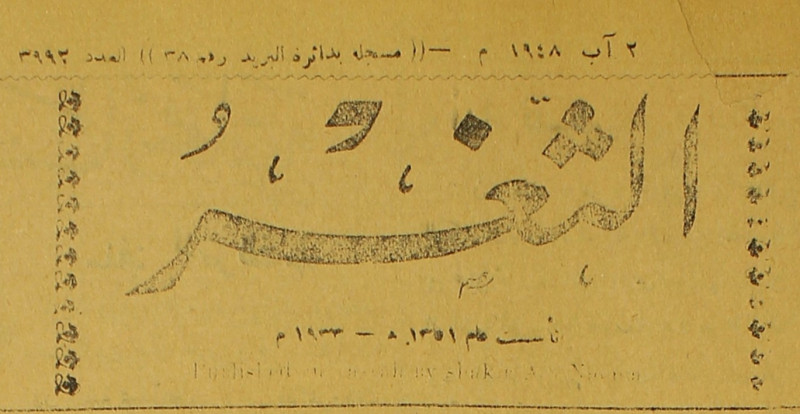 ٢ آب ١٩٤٨ م —(( مسجله بدائرة البريد رقم ٣٨ )) العدد ٣٩٩٢
الثغر
تأسست عام ١٣٥١ ه — ١٩٣٣ م
Published